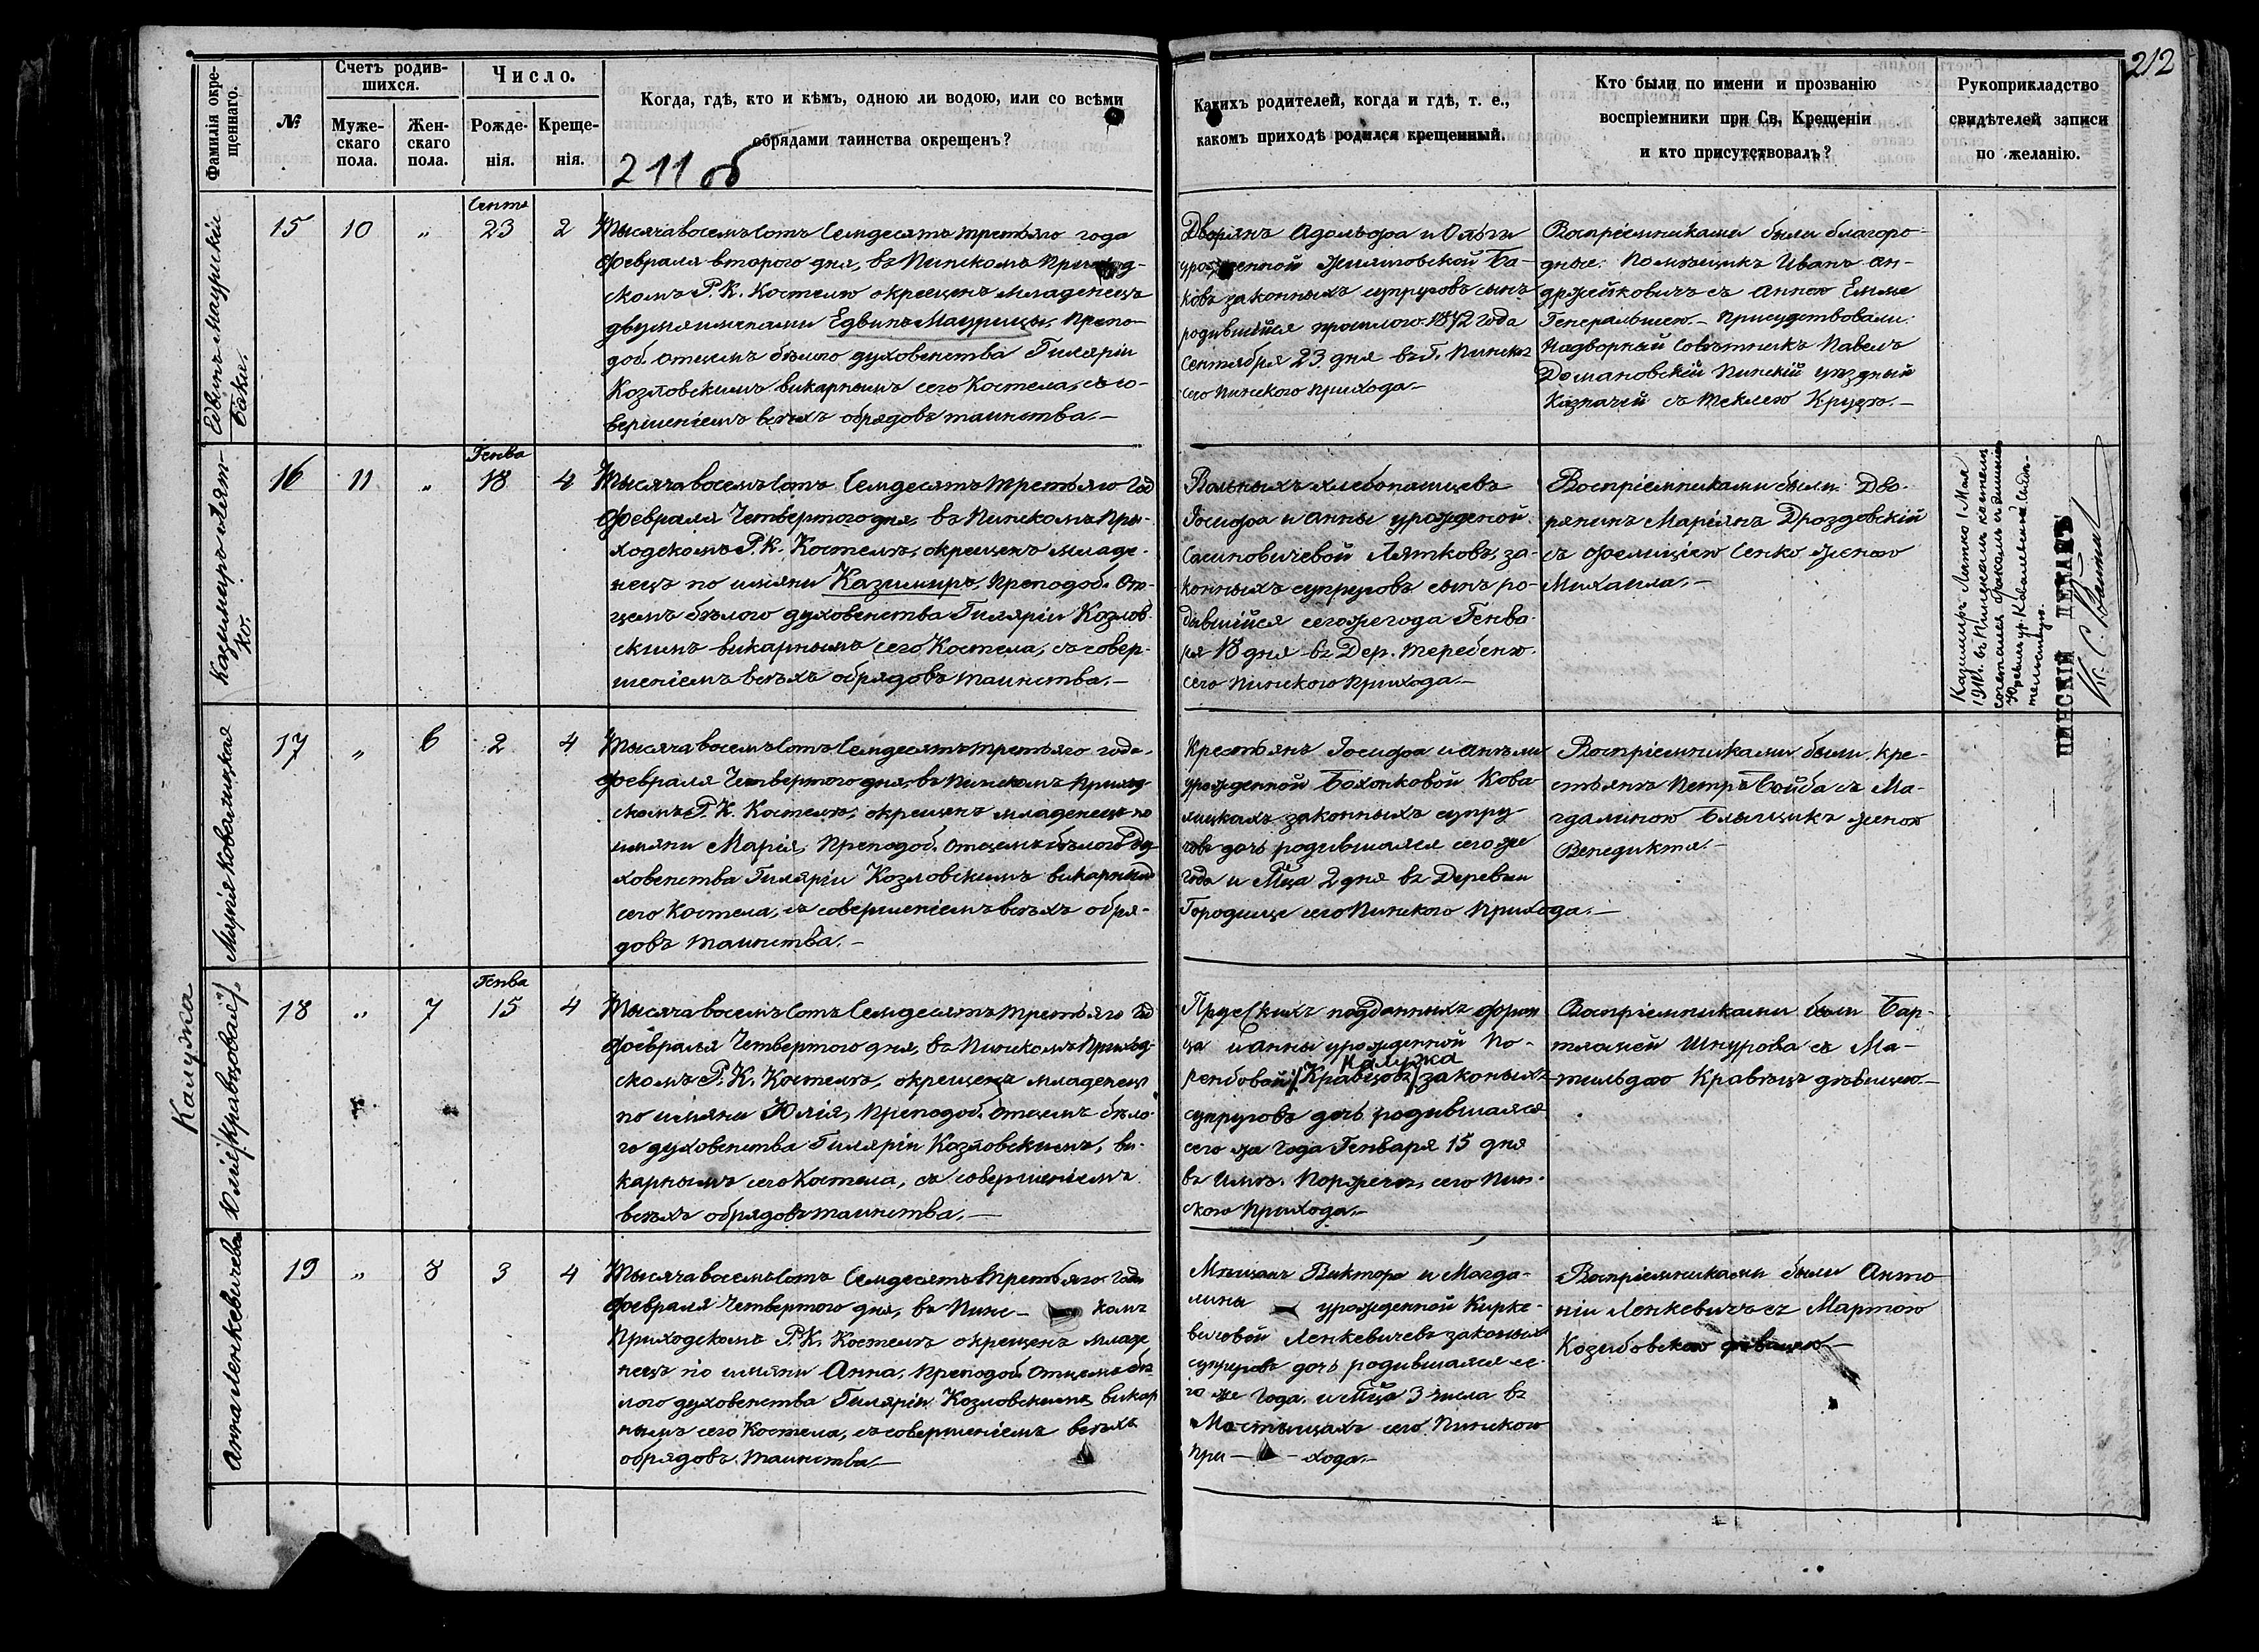 212
Фамилія окре-
щеннаго.
№
Счетъ родив-
шихся.
Муже-
скаго
пола.
Жен-
скаго
пола.
Число.
Рожде-
нія.
Креще-
нія.
Когда, гдѣ, кто и кѣмъ, одною ли водою, или со всѣми
обрядами таинства окрещенъ?
211 об
Какихъ родителей, когда и гдѣ, т. е.,
какомъ приходѣ родился крещенный.
Кто были по имени и прозванію
воспріемники при Св. Крещеніи
и кто присутствовалъ?
Рукоприкладство
свидѣтелей записи
по желанію.
Едвинъ Маурицій
Баки.
15
10
"
Септе
23
2
Тысяча восемъ Сотъ Семдесятъ третьяго года
Февраля второго дня, въ Пинскомъ Приход-
скомъ Р. К. Костелѣ окрещенъ младенецъ
двумя именами Едвинъ Маурицы, Препо-
доб. отцемъ бѣлого духовенства Гиляріи
Козловскимъ викарнымъ сего Костела, съ со-
вершеніемъ всѣхъ обрядовъ таинства.—
Дворянъ Адольфа и Ольги
урожденной Ба-
ковъ законныхъ супруговъ сынъ
родившійся прошлого 1872 года
Сентября 23 дня въ Г. Пинскѣ
сего Пинского Прихода—
Воспріемниками были благоро-
дные: Помѣщикъ Иванъ Ан-
држейковичъ съ Анною Емме
Генеральшею.— Присудствовали:
Надворный Совѣтникъ Павелъ
Домановскій Пинскій уѣздный
Казначей съ Теклею Круze.—
Казимиръ Лят-
ко.
16
11
"
Генва
18
4
Тысяча восемъ Сотъ Семдесятъ третьяго Год
Февраля Четвертого дня, въ Пинскомъ При-
ходскомъ Р. К. Костелѣ, окрещенъ младе-
нецъ по имяни Казимиръ, Преподоб. От-
цемъ бѣлого духовенства Гиляріи Козлов-
скимъ викарнымъ сего Костела, съ совер-
шеніемъ всѣхъ обрядовъ таинства.—
Вольныхъ хлебопашцевъ
Іосифа и Анны урожденой
Сасиновичевой Лятковъ, за-
конныхъ супруговъ сынъ ро-
дившійся сегоже года Генва-
ря 18 дня въ Дер. Теребень
сего Пинского Прихода.—
Воспріемниками были: Дво-
рянинъ Маріянъ Дроздовскій
съ Фелиціею Сенко женою
Михаила.—
Казимиръ Лятко 1 Мая
въ Пинскомъ костелѣ
сочетался бракомъ съ
ПИНСКІЙ ДЕКАНЪ
Марія Ковалицкая
17
"
6
2
4
Тысяча восемъ Сотъ Семдесятъ третьяго года
Февраля Четвертого дня, въ Пинскомъ Приход-
скомъ Р. К. Костелѣ, окрещенъ младенецъ по
имяни Марія, Преподоб. Отцемъ бѣлого Ду-
ховенства Гиляріи Козловскимъ викарнымъ
сего Костела, съ совершеніемъ всѣхъ обря-
довъ таинства.—
Крестьянъ Іосифа и Анѣли
урожденной Бохонковой Кова-
лицкихъ законныхъ супру-
говъ дочь родившаяся сего же
года и Мца 2 дня въ Деревни
Городище сего Пинского Прихода.—
Воспріемниками были Кре-
стьянъ Петръ Бойба съ Ма-
гдалиною Блыщикъ женою
Венедикта.—
Калужка
Юлія /Кравцовая/.
18
"
7
Генва
15
4
Тысяча восемъ Сотъ Семдесятъ третьяго Год
Февраля Четвертого дня, въ Пинскомъ Приход-
скомъ Р. К. Костелѣ, окрещенъ младенецъ
по имяни Юлія, Преподоб. Отцемъ бѣло-
го духовенства Гиляріи Козловскимъ, ви-
карнымъ сего Костела, съ совершеніемъ
всѣхъ обрядовъ таинства.—
Прусскихъ подданныхъ Фран
ца и Анны урожденной По-
Калужка
рембовой /Кравцовъ/ законныхъ
супруговъ дочь родившаяся
сего жа года Генваря 15 дня
въ Имѣ. Порѣчьѣ, сего Пин-
ского Прихода.—
Воспріемниками были Бар-
тломей Шнурова съ Ма-
тильдою Кравѣцъ дѣвицею.—
Анна Ленкевичева
19
"
8
3
4
Тысяча восемъ Сотъ Семдесятъ Третьяго Года
Февраля Четвертого дня, въ Пинс- комъ
Приходскомъ Р. К. Костелѣ окрещенъ младе
нецъ по имяни Анна, Преподоб. Отцемъ бѣ-
лого духовенства Гиляріи Козловскимъ викар
нымъ сего Костела, съ совершеніемъ всѣхъ
обрядовъ таинства.—
Мѣщанъ Виктора и Магда-
лины урожденной Кирке-
вичовой Ленкевичевъ законныхъ
супруговъ дочь родившаяся се-
го же Года и Мца 3 числа въ
Мостыцахъ сего Пинского
При— — хода.—
Воспріемниками были Анто
ній Ленкевичъ съ Мартою
Козибовскою дѣвицею—